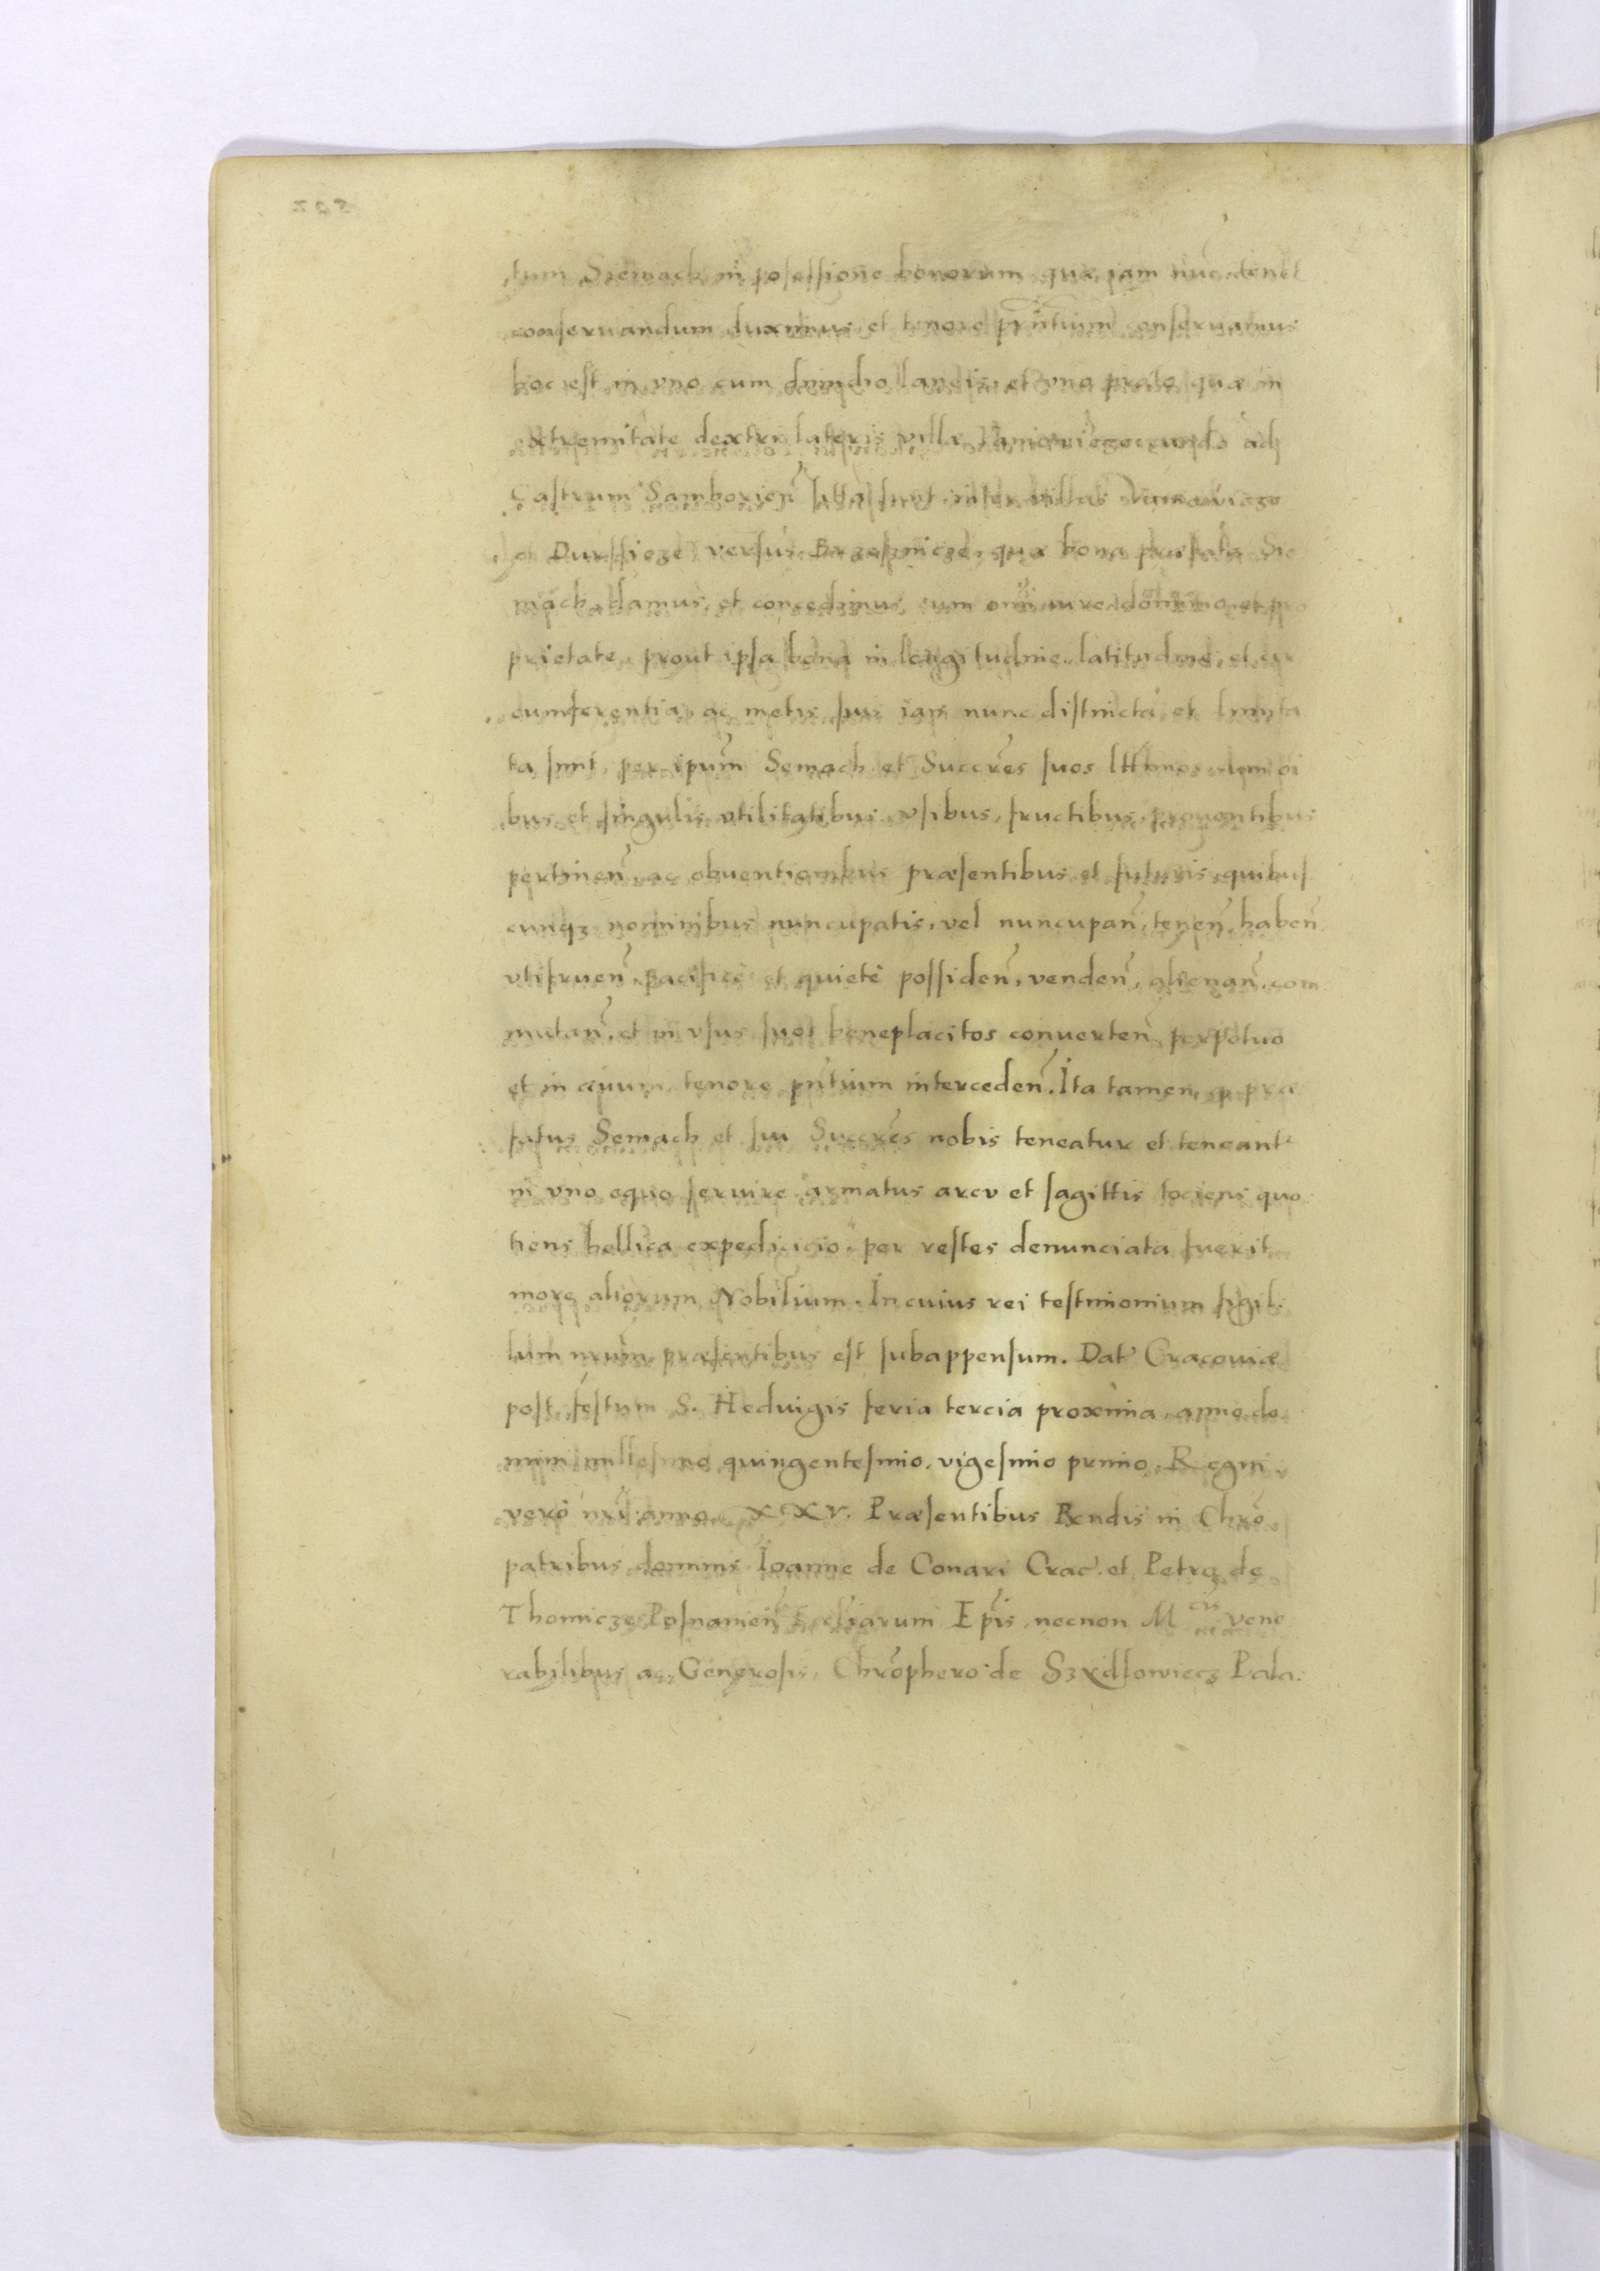 tum Siemach in possessione bonorum quæ iam nuc tenet
conseruandum duximus, et tenore pñtium conseruamus
hoc est in vno cum dimidio laneis, et vno prato quæ in
extremitate dextri lateris villæ eundo ad
Castrum Samborieñ sita sunt inter villas
et versus quæ bona præfato Sie
mach damus, et concedimus cum omi iure dominio et pro
prietate, prout ipsa bona in longitudine, latitudine, et cir
cumferentia, ac metis suis iam nunc distincta et limita
ta sunt, per ipum Semach et Succres suos lttimos cum oi
bus et singulis vtilitatibus, vsibus, fructibus, prouentibus
pertineñ, ac obuentionibus præsentibus et futuris, quibus
cunqȝ nominibus nuncupatis, vel nuncupañ, teneñ, habeñ
vtifrueñ, pacificè et quietè possideñ, vendeñ, alienañ, com
mutañ, et in vsus suos beneplacitos conuerteñ, perpetuo
et in æuum, tenore pñtium intercedeñ. Ita tamen, q præ
fatus Semach et sui Succres nobis teneatur et teneant
in vno equo seruire armatus arcu et sagittis tociens quo
tiens bellica expedicio, per restes denunciata fuerit
more aliorum Nobilium. In cuius rei testimonium sigil
lum nrum præsentibus est subappensum. Dat Cracouiæ
post festum S. Heduigis feria tercia proxima, anno do
mini millesimo quingentesimo, vigesimo primo. Regni
verò nri anno XXV. Præsentibus Rendis in Chro
patribus dominis Ioanne de Conari Crac. et Petro de
Thomicze Posnanieñ Ecclesiarum Epis necnon M cis vene
rabilibus ac Generosis, Chrophero de Szidlowiecz Pala